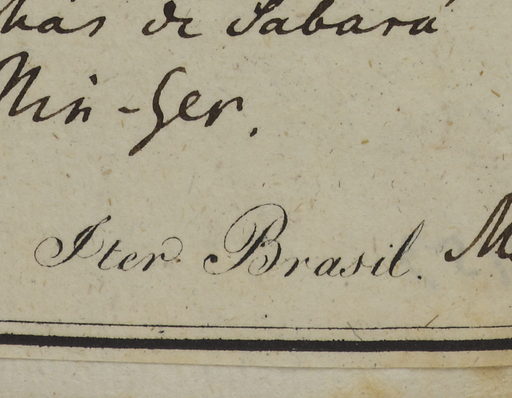 de Sabará
Min-Ger.
Iter Brasil.